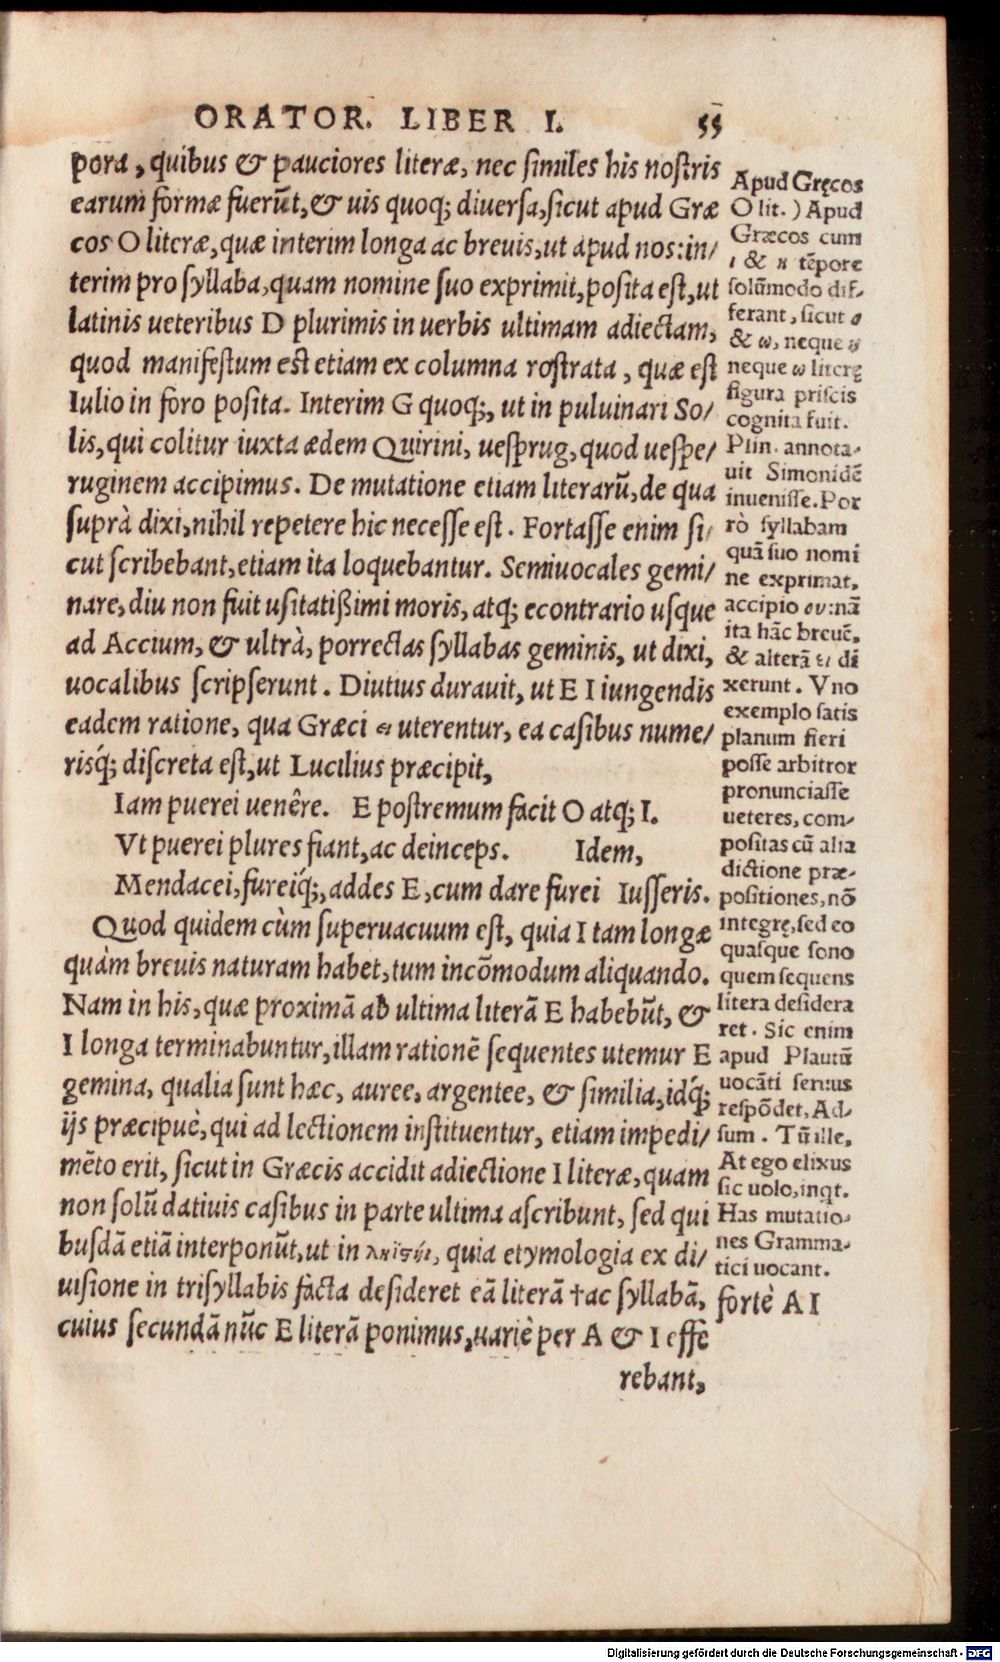 ORATOR. LIBER I. 55
pora, quibus & pauciores literæ, nec similes his nostris
earum formæ fuerūt, & uis quoq; diuersa, sicut apud Græ
cos O literæ, quæ interim longa ac breuis, ut apud nos: in/
terim pro syllaba, quam nomine suo exprimit, posita est, ut
latinis ueteribus D plurimis in uerbis ultimam adiectam,
quod manifestum est etiam ex columna rostrata, quæ est
Iulio in foro posita. Interim G quoq;, ut in puluinari So/
lis, qui colitur iuxta ædem Quirini, uesprug, quod uespe/
ruginem accipimus. De mutatione etiam literarū, de qua
suprà dixi, nihil repetere hic necesse est. Fortasse enim si/
cut scribebant, etiam ita loquebantur. Semiuocales gemi/
nare, diu non fuit usitatißimi moris, atq; econtrario usque
ad Accium, & ultrà, porrectas syllabas geminis, ut dixi,
uocalibus scripserunt. Diutius durauit, ut E I iungendis
eadem ratione, qua Græci ει uterentur, ea casibus nume/
risq́; discreta est, ut Lucilius præcipit,
Iam puerei uenêre. E postremum facit O atq; I.
Vt puerei plures fiant, ac deinceps. Idem,
Mendacei, fureiq́;, addes E, cum dare furei Iusseris.
Quod quidem cùm superuacuum est, quia I tam longæ
quàm breuis naturam habet, tum incōmodum aliquando.
Nam in his, quæ proximā ab ultima literā E habebūt, &
I longa terminabuntur, illam rationē sequentes utemur E
gemina, qualia sunt hæc, auree, argentee, & similia, idq́;
ijs præcipuè, qui ad lectionem instituentur, etiam impedi/
mēto erit, sicut in Græcis accidit adiectione I literæ, quam
non solū datiuis casibus in parte ultima ascribunt, sed qui
busdā etiā interponūt, ut in ληιστήι, quia etymologia ex di/
uisione in trisyllabis facta desideret eā literā †ac syllabā,
cuius secundā nūc E literā ponimus, uariè per A & I effe
rebant,
Apud Gręcos
O lit. ) Apud
Græcos cum
ι & η tēpore
solūmodo dif-
ferant, sicut ο
& ω, neque η
neque ω literę
figura priscis
cognita fuit.
Plin. annota-
uit Simonidē
inuenisse. Por
rò syllabam
quā suo nomi
ne exprimat,
accipio ου: nā
ita hāc breuē,
& alterā ει di
xerunt. Vno
exemplo satis
planum fieri
posse arbitror
pronunciasse
ueteres, com-
positas cū alia
dictione præ-
positiones, nō
integrę, sed eo
quasque sono
quem sequens
litera desidera
ret. Sic enim
apud Plautū
uocāti seruus
respōdet, Ad-
sum. Tū ille,
At ego elixus
sic uolo, inqt.
Has mutatio-
nes Gramma-
tici uocant.
fortè A I
Digitalisierung gefördert durch die Deutsche Forschungsgemeinschaft - DFG